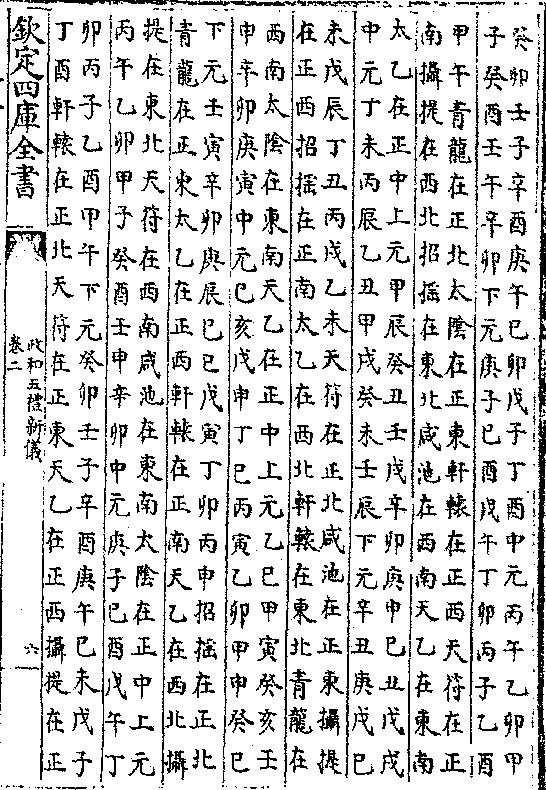 癸卯壬子辛酉庚午己卯戊子丁酉中元丙午乙卯甲
子癸酉壬午辛卯下元庚子己酉戊午丁卯丙子乙酉
甲午青龍在正北太陰在正東軒轅在正西天符在正
南攝提在西北招搖在東北咸池在西南天乙在東南
太乙在正中上元甲辰癸丑壬戌辛卯庚申己丑戊戌
中元丁未丙辰乙丑甲戌癸未壬辰下元辛丑庚戌己
未戊辰丁丑丙戌乙未天符在正北咸池在正東攝提
在正西招搖在正南太乙在西北軒轅在東北青龍在
西南太陰在東南天乙在正中上元乙巳甲寅癸亥壬
申辛卯庚寅中元己亥戊申丁巳丙寅乙卯甲申癸巳
下元壬寅辛卯庚辰己巳戊寅丁卯丙申招搖在正北
青龍在正東太乙在正西軒轅在正南天乙在西北攝
提在東北天符在西南咸池在東南太陰在正中上元
丙午乙卯甲子癸酉壬申辛卯中元庚子己酉戊午丁
卯丙子乙酉甲午下元癸卯壬子辛酉庚午己未戊子
丁酉軒轅在正北天符在正東天乙在正西攝提在正
欽定四庫全書
政和五禮新儀
卷二
六